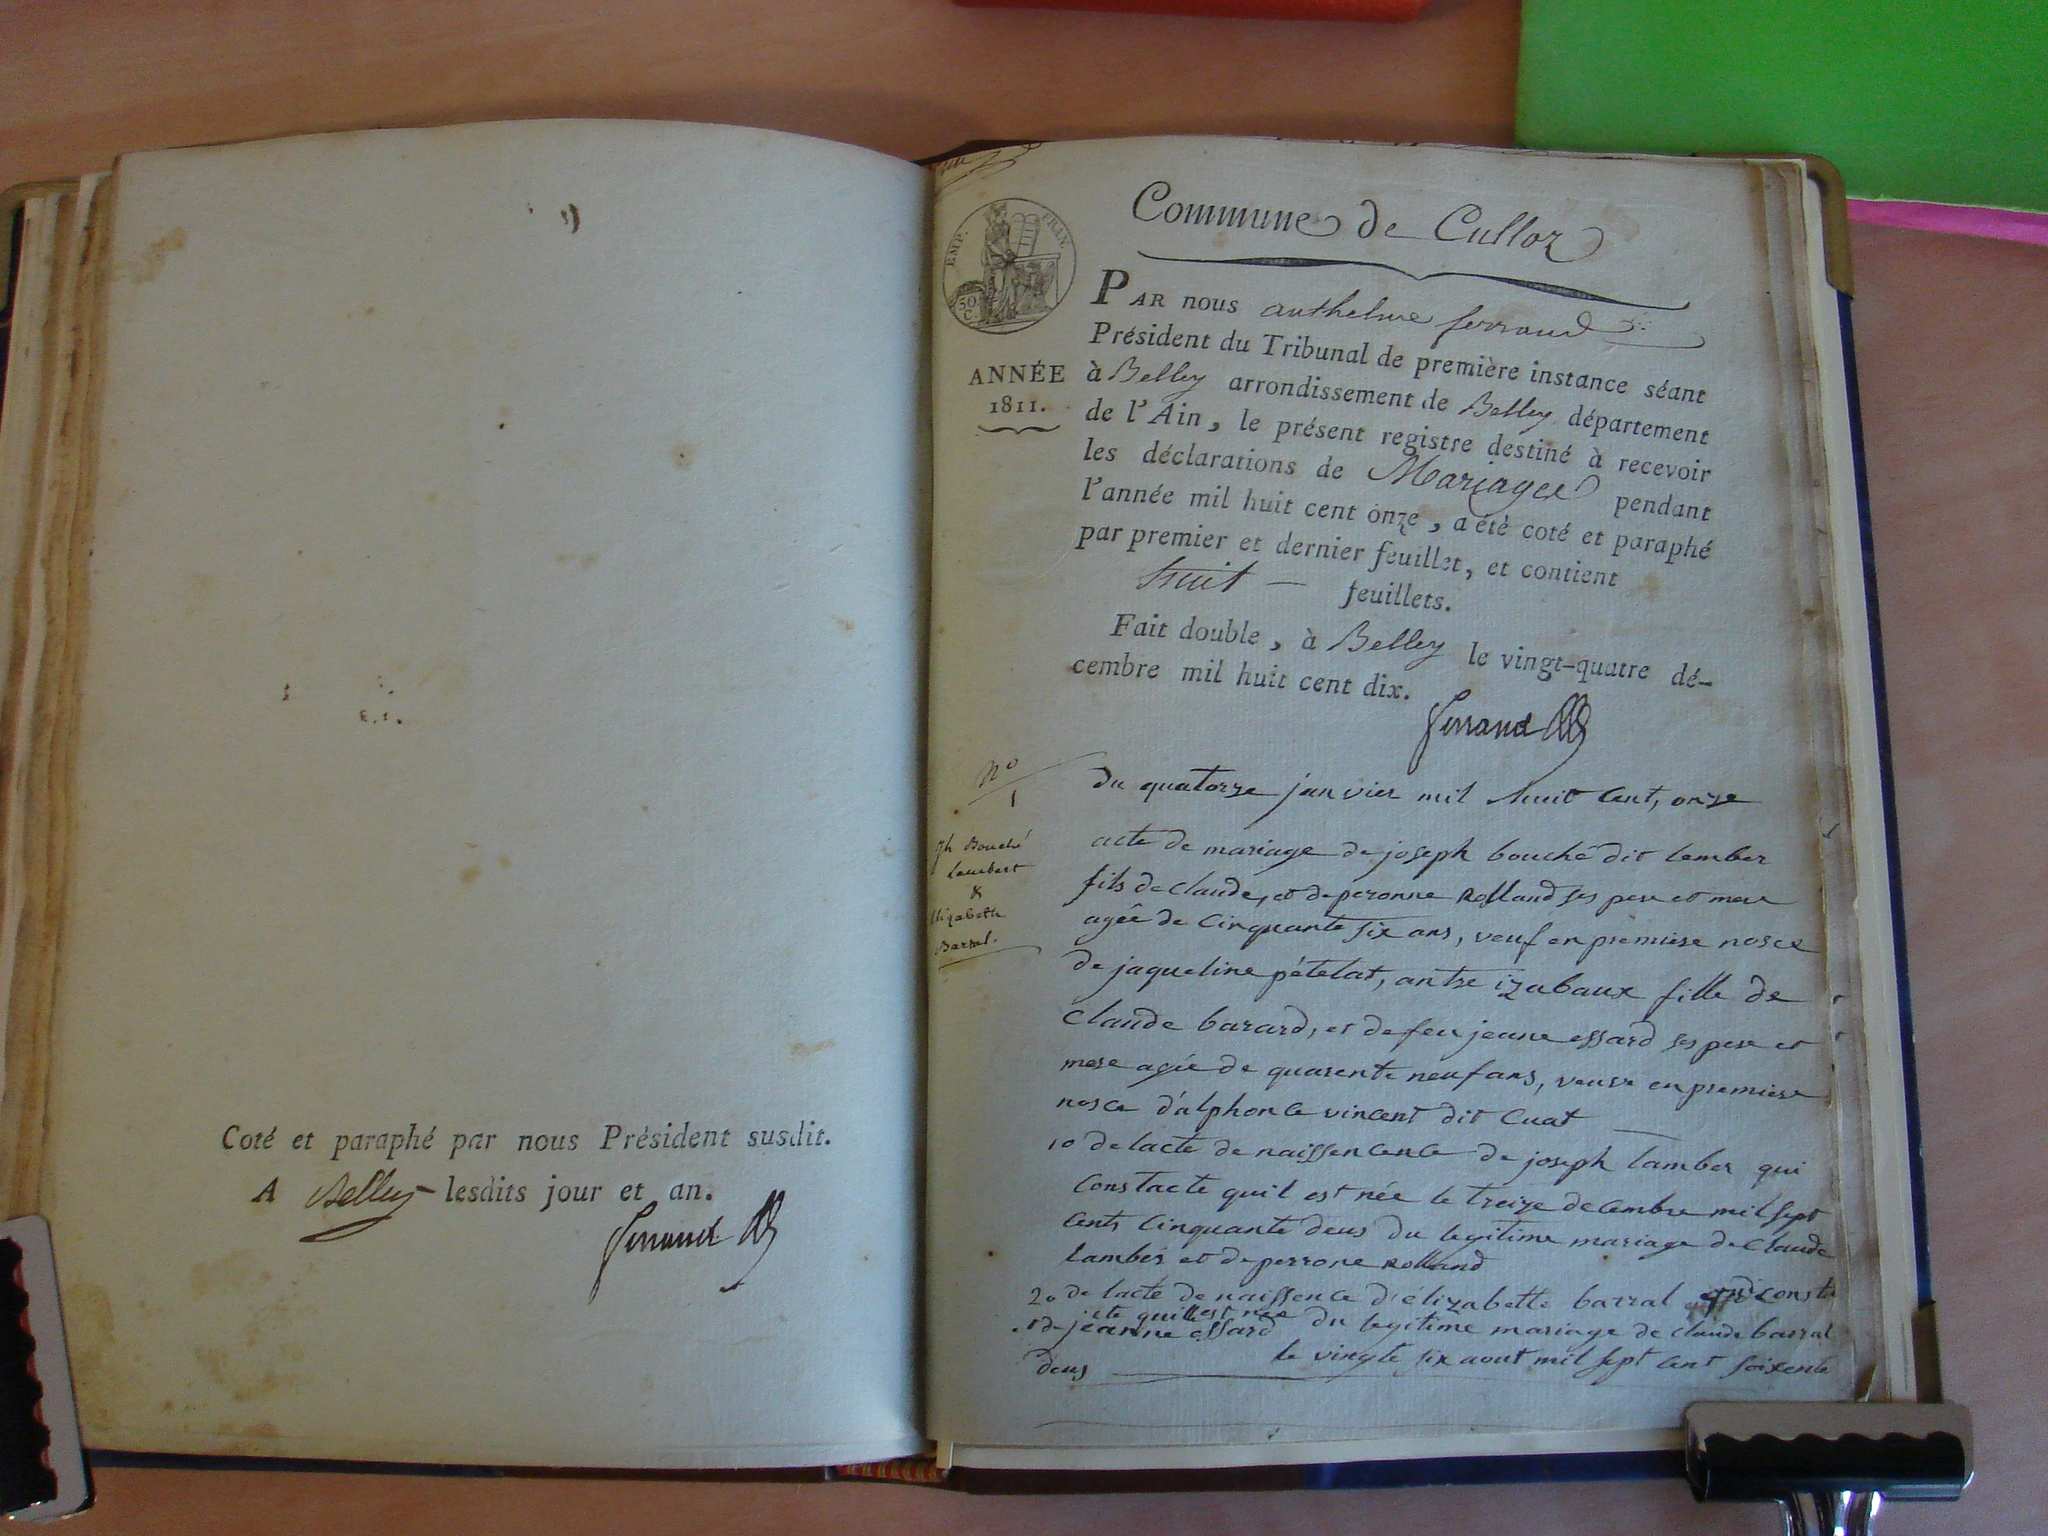 Coté et paraphé par nous Président susdit.
A Belley lesdits jour et an.
Ferrand
EMP. FRAN.
50 C.
ANNÉE
1811.
Commune de Culloz
PAR nous anthelme ferrand
Président du Tribunal de première instance séant
à Belley arrondissement de Belley département
de l'Ain, le présent registre destiné à recevoir
les déclarations de Mariages pendant
l'année mil huit cent onze, a été coté et paraphé
par premier et dernier feuillet, et contient
huit — feuillets.
Fait double, à Belley le vingt-quatre dé-
cembre mil huit cent dix.
Ferrand
No
1
Jh Bouché
Lambert
&
Elizabette
Barral.
Du quatorze janvier mil huit cent, onze
acte de mariage de joseph bouché dit lamber
fils de claude, et de peronne Rolland ses pere et mere
agée de cinquante six ans, veuf en premiere nosce
de jaqueline pételat, antre izabaux fille de
claude barard, et de feu jeune essard ses pere et
mere agée de quarente neuf ans, veuve en premiere
nosce d'alphonce vincent dit cuat
10 de lacte de naissencence de joseph lamber qui
constacte quil est née le treize decembre mil sept
cents cinquante deus du legitime mariage de claude
lamber et de perrone Rolland
20 de lacte de naissence d'élizabette barral qui const
te quille est née du legitime mariage de claude barral
et de jeanne essard
le vingte six aout mil sept cent soixente
deus